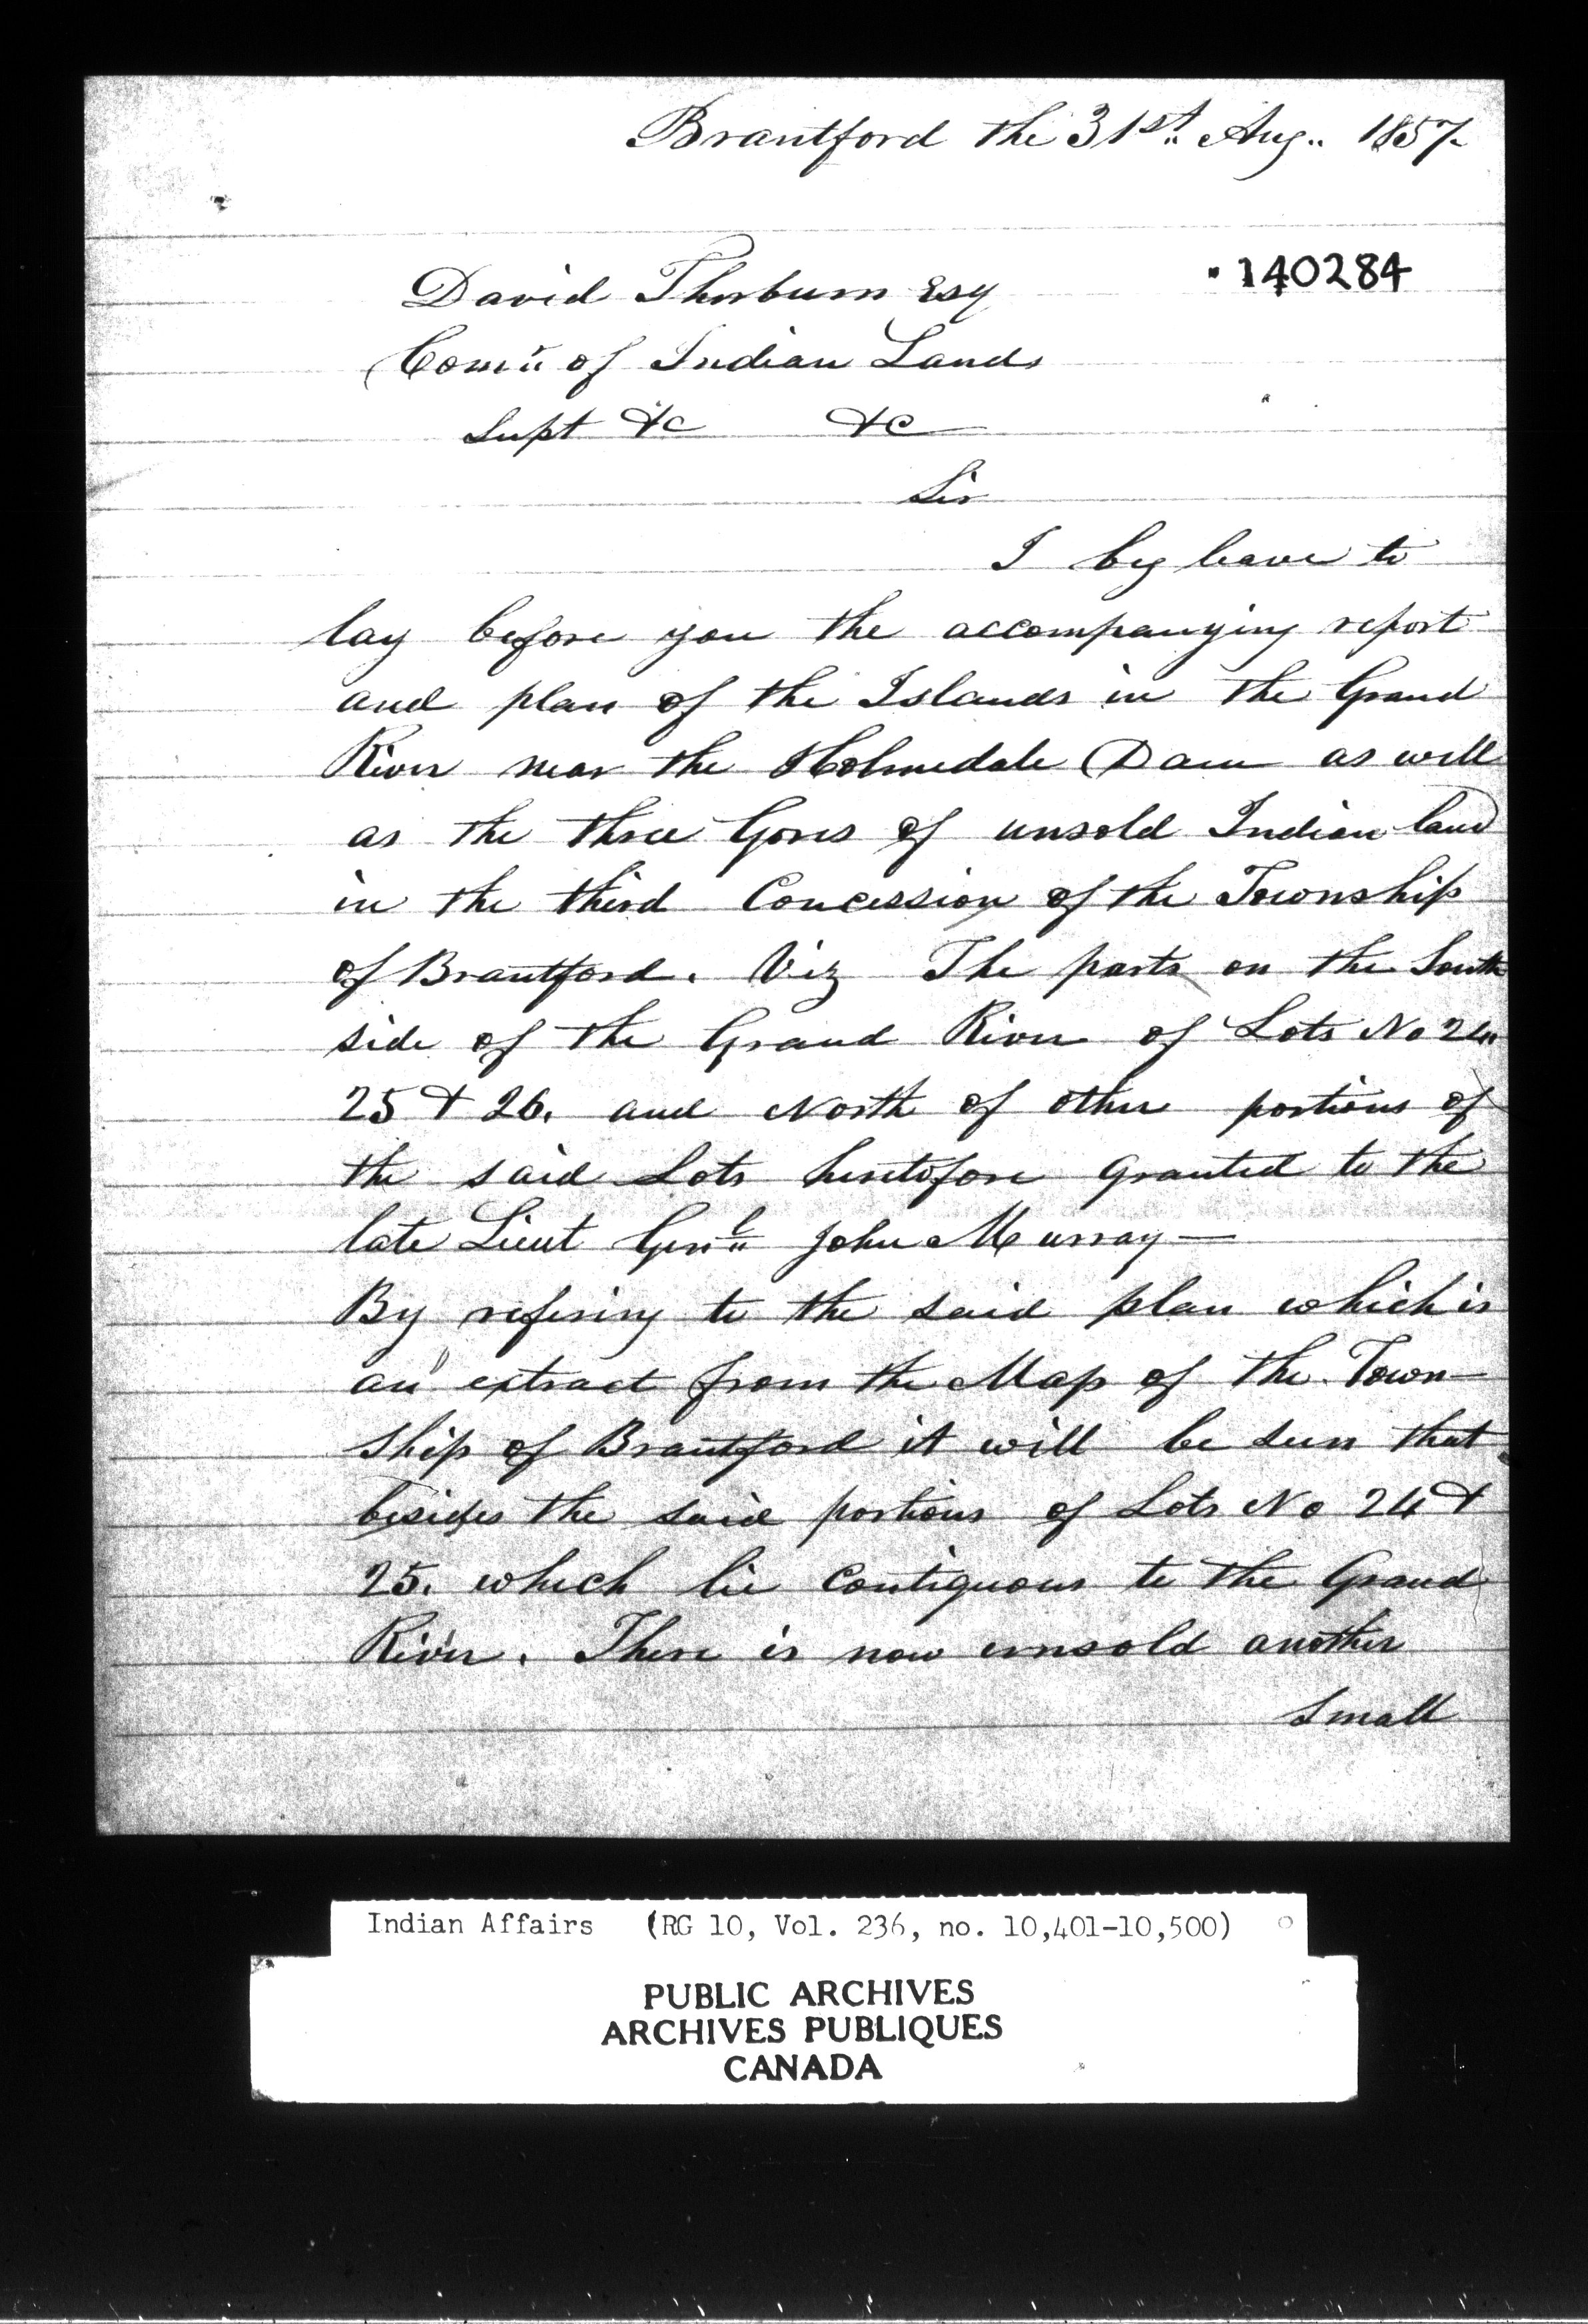 Brantford the 31st Aug. 1857
140284
David Thorburn Esq
Comr of Indian Lands
Supt &c &c
Sir
I beg leave to
lay before you the accompanying report
and plan of the Islands in the Grand
River near the Holmedale Dam as well
as the three Gores of unsold Indian land
in the third Concession of the Township
of Brantford. Viz The parts on the South
side of the Grand River of Lots No 24
25 & 26. and North of other portions of
the said Lots heretofore granted to the
late Lieut Genl John Murray —
By refering to the said plan which is
an extract from the Map of the Town-
ship of Brantford it will be seen that
besides the said portions of Lots No 24 &
25. which lie contiguous to the Grand
River. There is now unsold another
small
Indian Affairs (RG 10, Vol. 236, no. 10,401-10,500)
PUBLIC ARCHIVES
ARCHIVES PUBLIQUES
CANADA